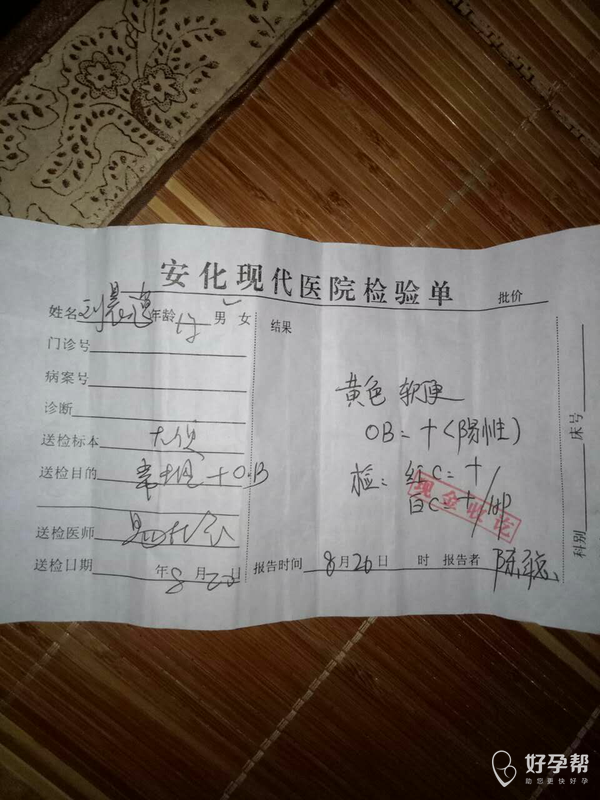 安化现代医院检验单
批价
姓名 年龄 男 女
门诊号
病案号
诊断
送检标本 大便
送检目的 常规+O.B
送检医师
送检日期 年 8 月 日
结果
黄色 软便
OB:+(阳性)
检: 红C:+
白C:+/HP
现金收讫
报告时间 8月26日 时 报告者
科别 床号
好孕帮
助您更快好孕